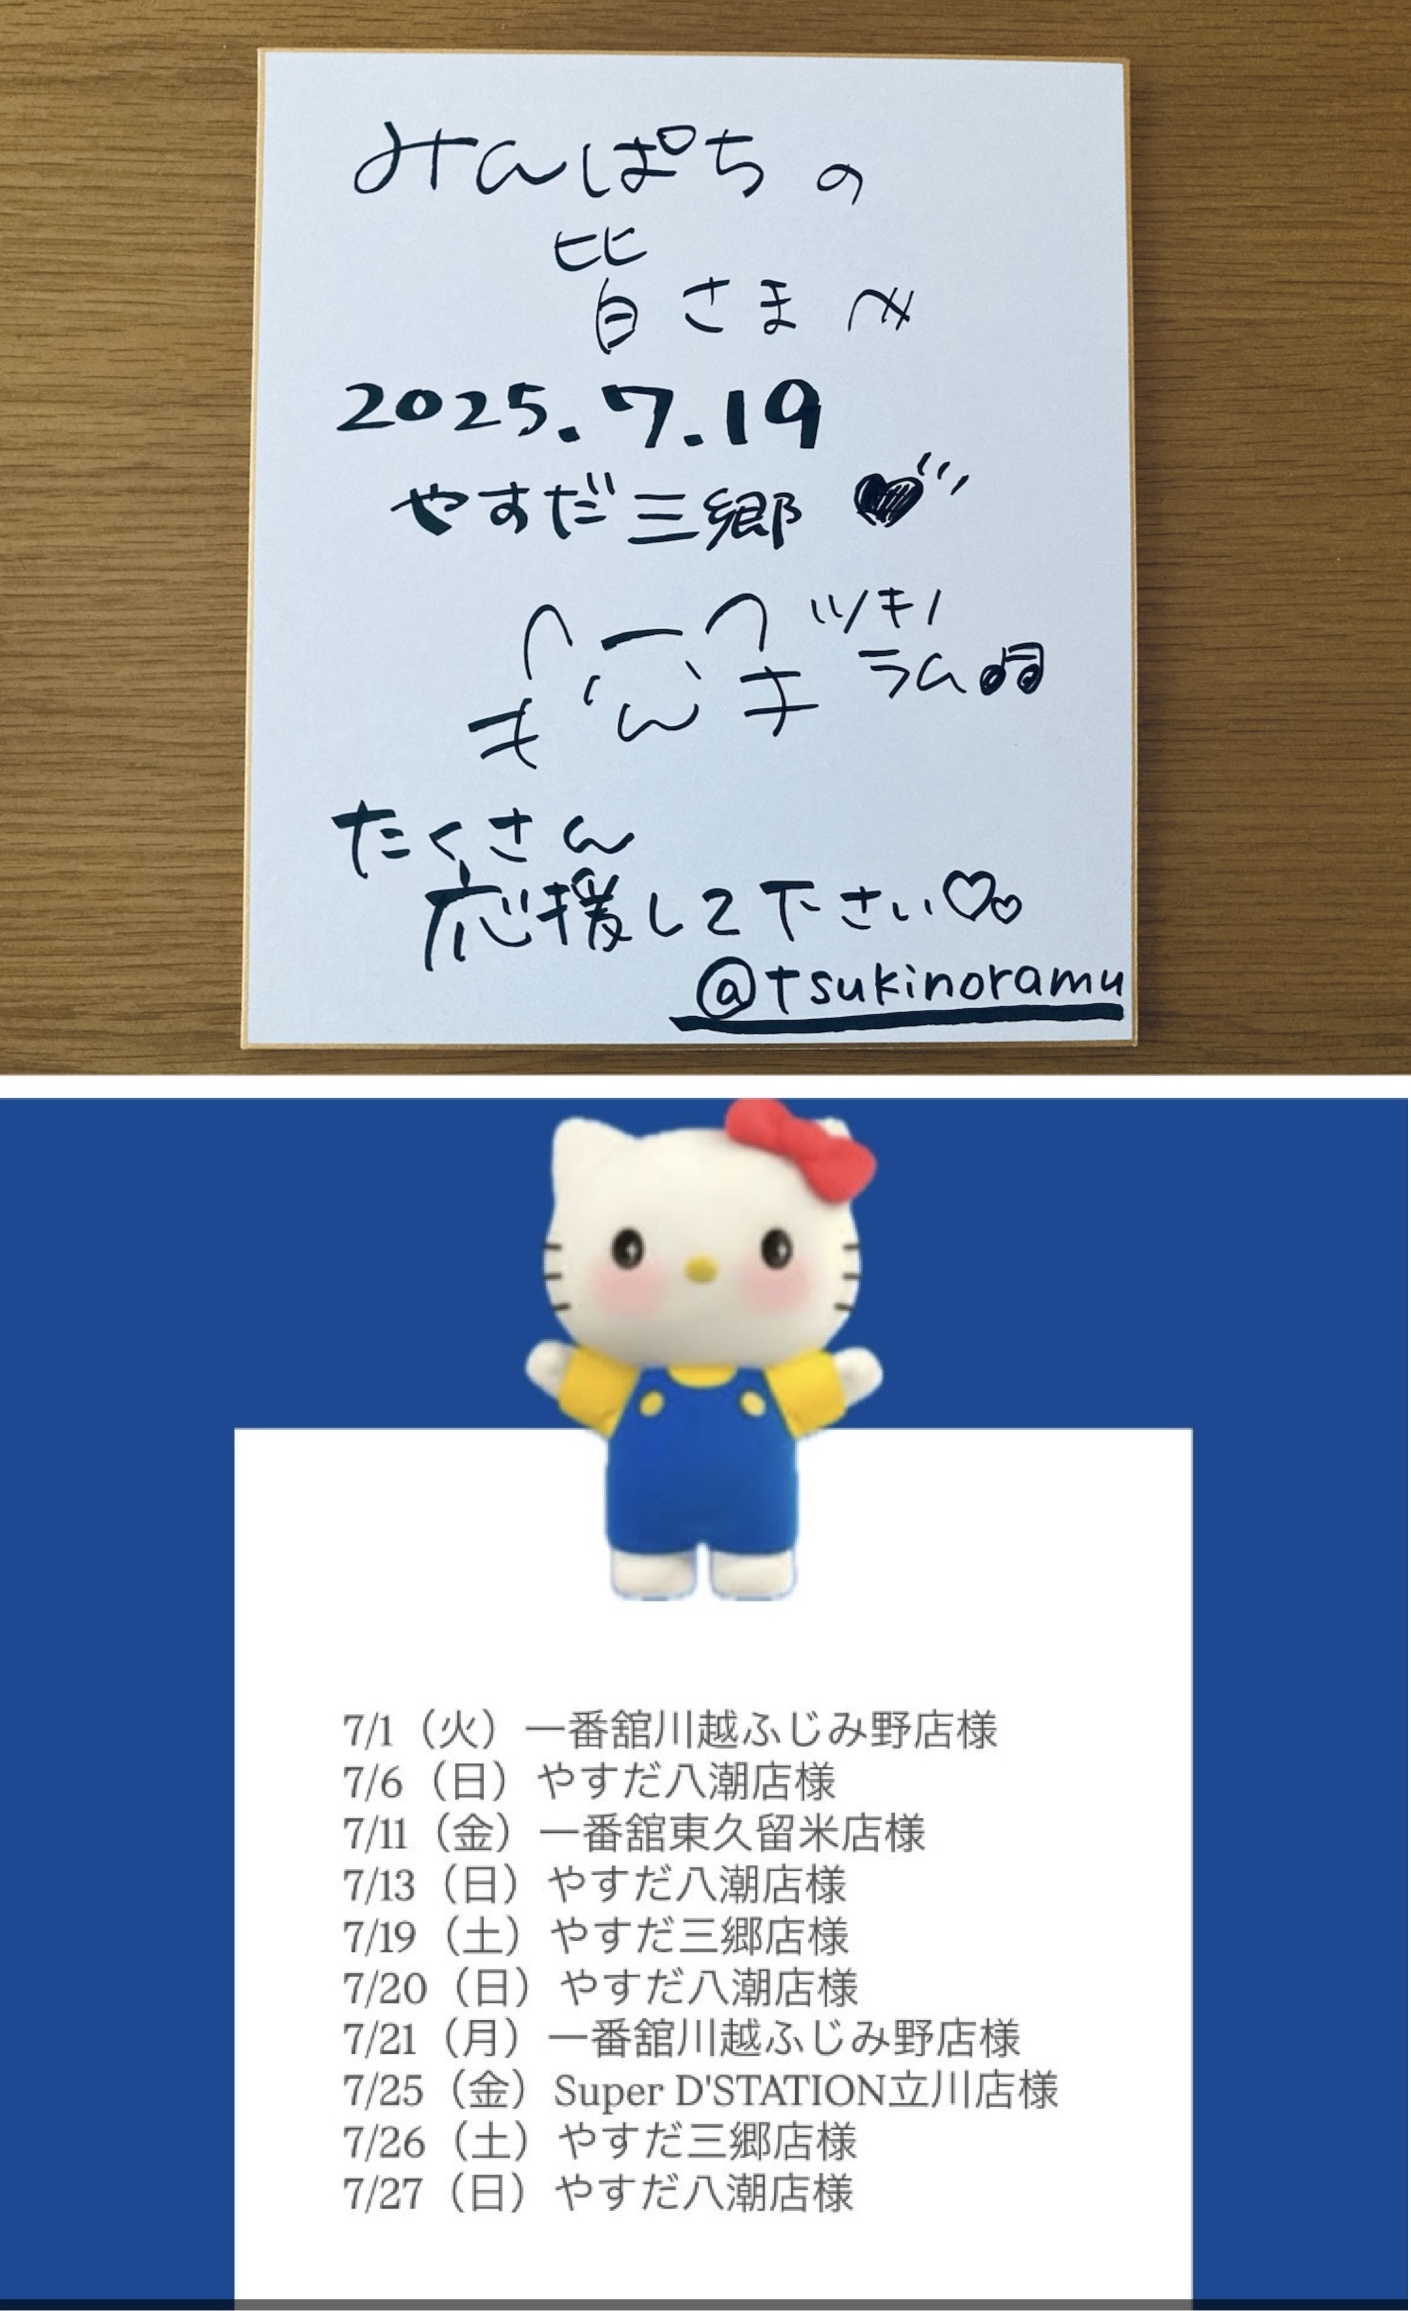 みんぱちの
皆さまへ
2025.7.19
やすだ三郷
ツキノ
ラム
たくさん
応援して下さい
@tsukinoramu
7/1（火）一番舘川越ふじみ野店様
7/6（日）やすだ八潮店様
7/11（金）一番舘東久留米店様
7/13（日）やすだ八潮店様
7/19（土）やすだ三郷店様
7/20（日）やすだ八潮店様
7/21（月）一番舘川越ふじみ野店様
7/25（金）Super D'STATION立川店様
7/26（土）やすだ三郷店様
7/27（日）やすだ八潮店様